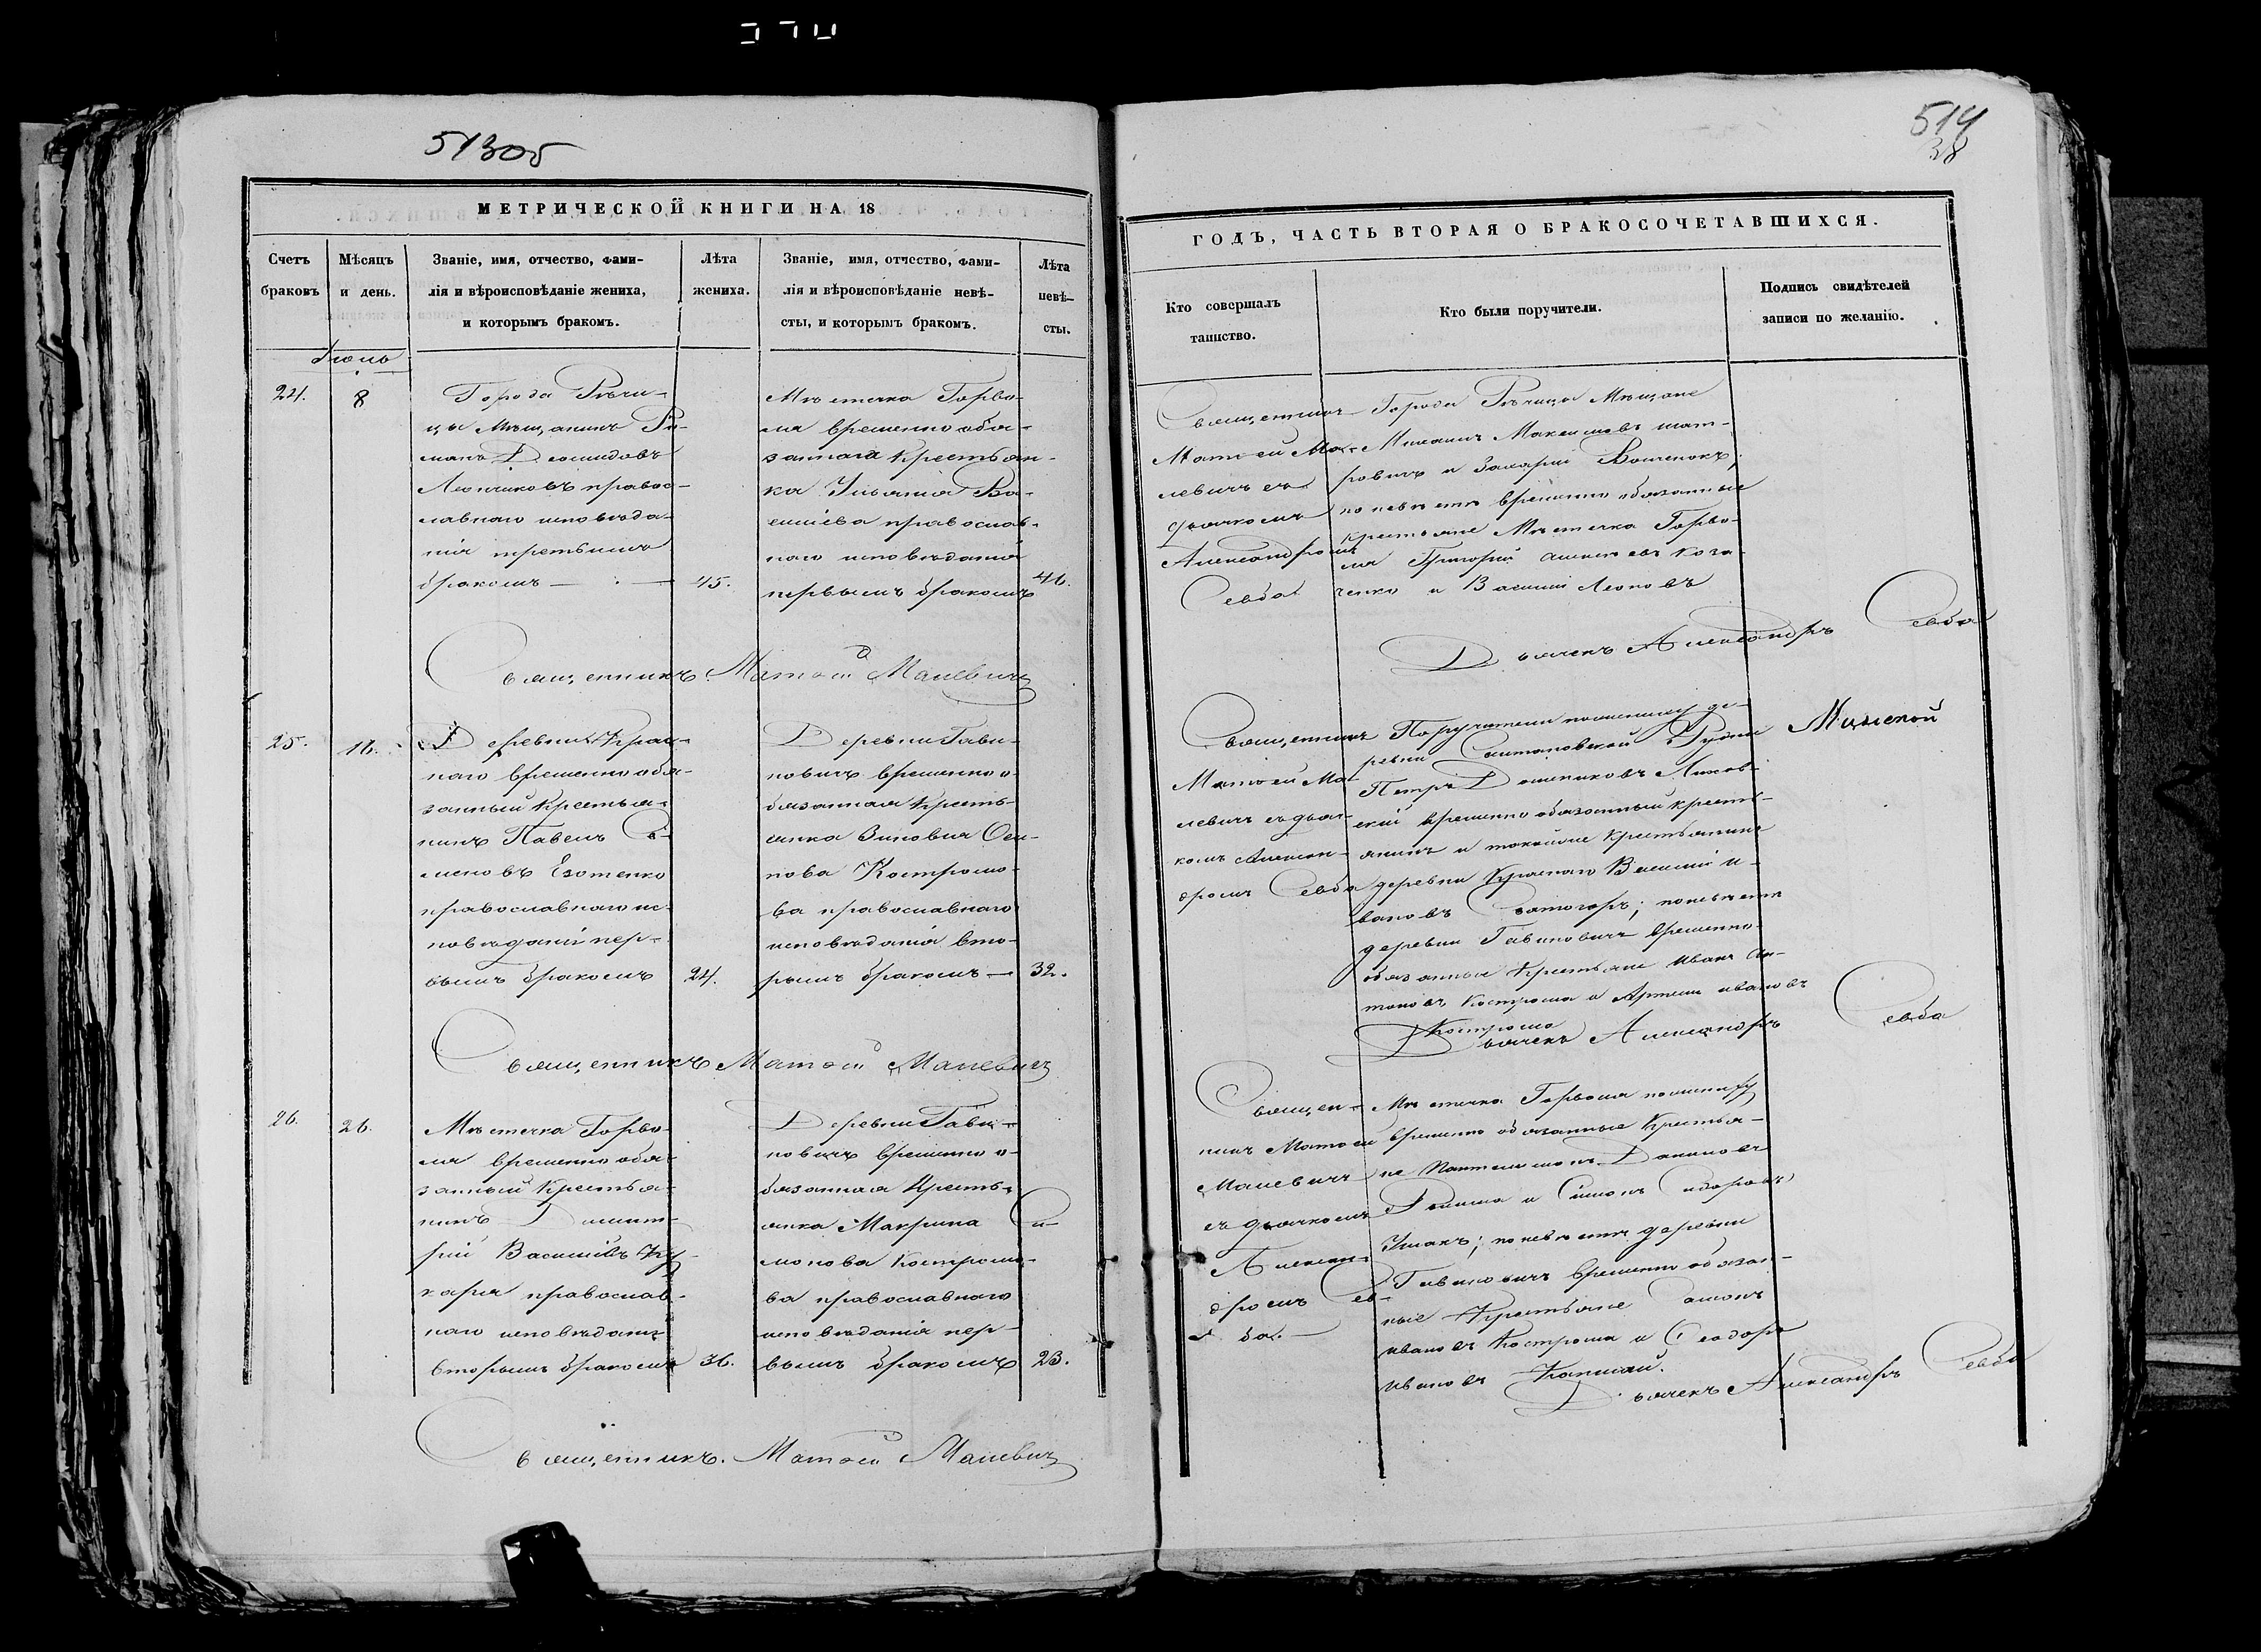 513об
514
38
МЕТРИЧЕСКОЙ КНИГИ НА 18
Счетъ браковъ
Мѣсяцъ и день.
Званіе, имя, отчество, фами-
лія и вѣроисповѣданіе жениха,
и которымъ бракомъ.
Лѣта
жениха.
Званіе, имя, отчество, фами-
лія и вѣроисповѣданіе невѣ-
сты, и которымъ бракомъ.
Лѣта
невѣ-
сты.
24.
8
Города Рѣчи-
цы Мѣщанинъ Ро-
манъ Демидовъ
правос-
лавнаго исповѣда-
нія третьимъ
бракомъ
45.
Мѣстечка Горво-
ля временно обя-
занная Крестьян-
ка Ульянія Ва-
силіева православ-
наго исповѣданія
первымъ бракомъ
Священникъ Матѳей Малевичъ
25.
16.
Деревни Крас-
наго временно обя-
занный Крестья-
нинъ Павелъ Се-
меновъ
православнаго ис-
повѣданія пер-
вымъ бракомъ
24.
Деревни Гави-
новичъ временно о-
бязанная Кресть-
янка Зиновія Оси-
пова Костромо-
ва православнаго
исповѣданія вто-
рымъ бракомъ
32.
Священникъ Матѳей Малевичъ
26.
26.
Мѣстечка Горво-
ля временно обя-
занный Крестья-
нинъ Димит-
рій Василіевъ
православ-
наго исповѣданія
вторымъ бракомъ
36.
Деревни Гави-
новичъ временно о-
бязанная Кресть-
янка Макрина Си-
монова Костромо-
ва православнаго
исповѣданія пер-
вымъ бракомъ
23.
Священникъ. Матѳей Малевичъ
ГОДЪ, ЧАСТЬ ВТОРАЯ О БРАКОСОЧЕТАВШИХСЯ.
Кто совершалъ
таинство.
Кто были поручители.
Подпись свидѣтелей
записи по желанію.
Священникъ
Матѳей Ма-
левичъ съ
дьячкомъ
Александромъ
Севба
Города Рѣчицы Мѣщане
Максимовъ
и Захарій
по невѣстѣ временно обязанные
крестьяне Мѣстечка Горво-
ля Григорій
и Василій Леоновъ
Дьячекъ Александръ Севба
Священникъ
Матѳей Ма-
левичъ съ дьяч-
комъ Алексан-
дромъ Севба
Поручители по жениху де-
ревни
Петръ
временно обязанный кресть-
янинъ и таковой же Крестьянинъ
деревни Краснаго Василій И-
вановъ по невѣстѣ
деревни Гавиновичъ временно
обязанные Крестьяне Иванъ Ан-
тоновъ Кострома и Артемъ Ивановъ
Кострома
Дьячекъ Александръ Севба
Священ-
никъ Матѳей
Малевичъ
съ дьячкомъ
Алексан-
дромъ Сев-
ба.
Мѣстечка Горволя по жениху
временно обязанные Крестья-
не Пантелимонъ
и Симонъ Сидоровъ
по невѣстѣ деревни
Гавиновичъ временно обязан-
ные Крестьяне
Ивановъ Кострома и Ѳеодоръ
Ивановъ
Дьячекъ Александръ Севба